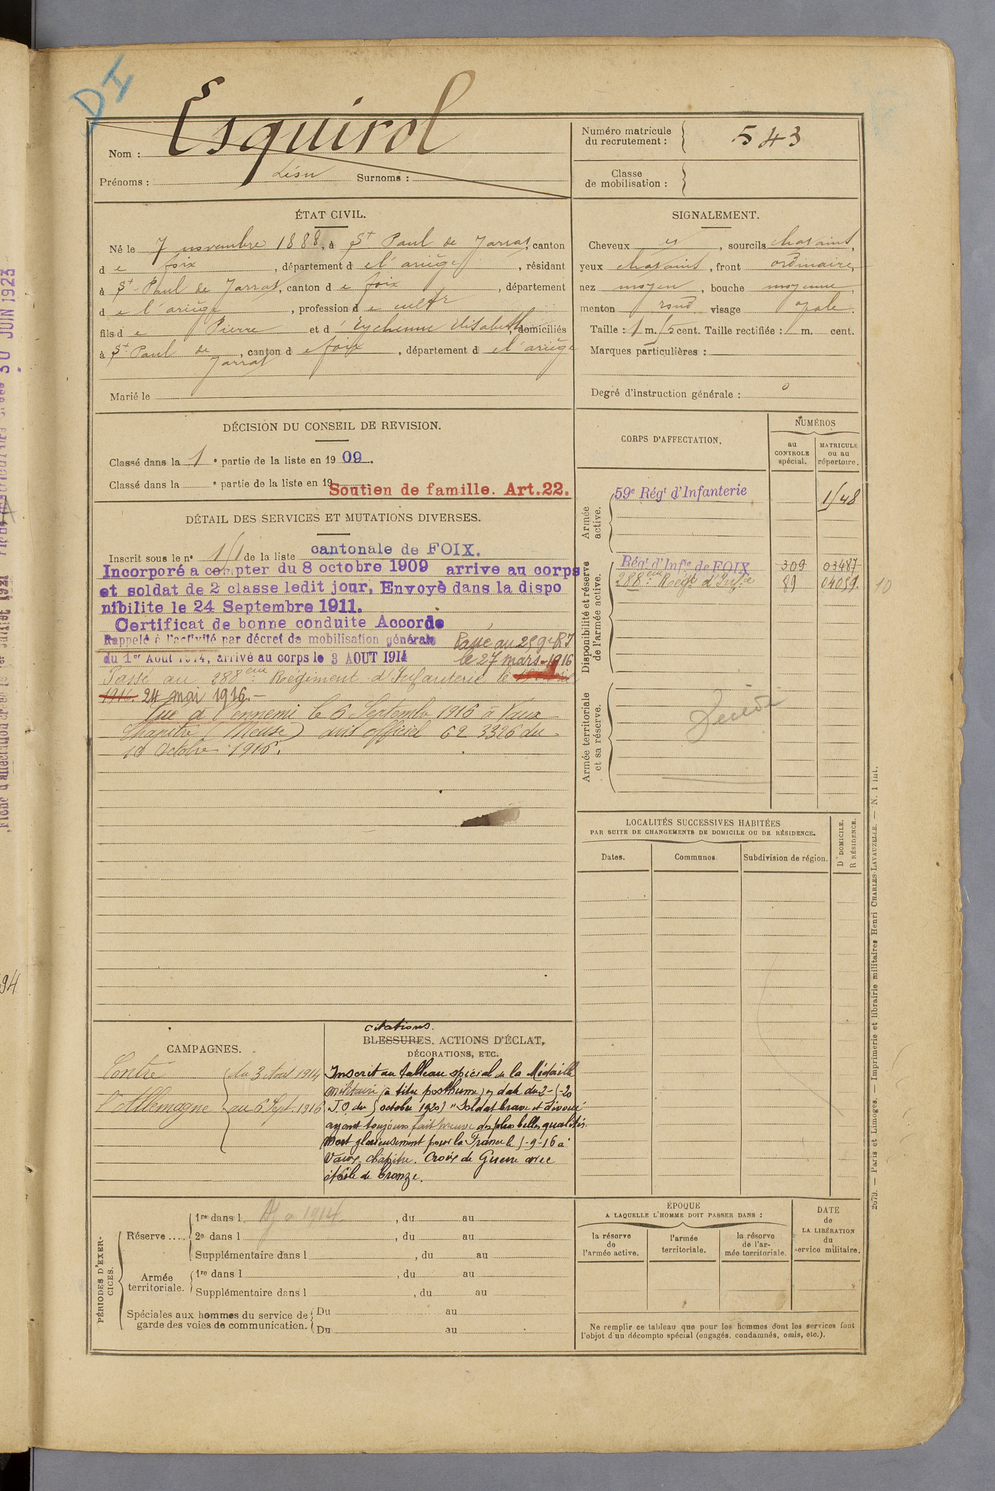 DI
Nom : Esquirol
Prénoms : Surnoms :
Numéro matricule du recrutement : 543
Classe de mobilisation :
ÉTAT CIVIL.
Né le 7 novembre 1888, à St Paul de Jarrat, canton
d e foix, département d e l'ariège, résidant
à St Paul de Jarrat, canton d e foix, département
d e l'ariège, profession d e cultr
fils d e Pierre et d' Eychenne Elisabeth, domiciliés
à St Paul de Jarrat, canton d e foix, département d e l'ariège
Marié le
SIGNALEMENT.
Cheveux , sourcils chatains,
yeux chatains, front ordinaire,
nez moyen, bouche moyenne,
menton rond visage ovale.
Taille : 1 m. cent. Taille rectifiée : m. cent.
Marques particulières :
Degré d'instruction générale :
DÉCISION DU CONSEIL DE REVISION.
Classé dans la 1 e partie de la liste en 1909.
Classé dans la e partie de la liste en 19
Soutien de famille. Art.22.
DÉTAIL DES SERVICES ET MUTATIONS DIVERSES.
Inscrit sous le n° de la liste cantonale de FOIX.
Incorporé a compter du 8 octobre 1909 arrive au corps
et soldat de 2 classe ledit jour, Envoyè dans la dispo
nibilite le 24 Septembre 1911.
Certificat de bonne conduite Accorde
Rappelé à l'activité par décret de mobilisation générale
du 1er Aout 1914, arrivé au corps le 3 AOUT 1914
Passé au 259e RI
le 27 mars 1916
Passé au 288eme Régiment d'Infanterie le
1916. 24 mai 1916.-
Tué à l'ennemi le 6 Septembre 1916 à Vaux
Chapitre (Meuse) avis officiel 62 3326 du
18 Octobre 1916.
CORPS D'AFFECTATION.
NUMÉROS
au CONTROLE spécial.
MATRICULE ou au répertoire.
Armée active.
59e Régt d'Infanterie
Disponibilité et réserve de l'armée active.
Régt d'Infie de FOIX 309 03487
288eme Régt d'Infie 89 04059.
10
Armée territoriale et sa réserve.
LOCALITÉS SUCCESSIVES HABITÉES
PAR SUITE DE CHANGEMENTS DE DOMICILE OU DE RÉSIDENCE.
Dates.
Communes.
Subdivision de région.
D. DOMICILE.
R. RÉSIDENCE.
CAMPAGNES.
Contre l'Allemagne
du 3 Aout 1914
au 6 Sept. 1916
citations.
BLESSURES, ACTIONS D'ÉCLAT,
DÉCORATIONS, ETC.
Inscrit au tableau spécial de la Médaille
militaire (à titre posthume)
J.O du 5 octobre 1920 "Soldat brave et dévoué
ayant toujours fait preuve des plus belles qualités.
Mort glorieusement pour la France le 5-9-16 à
Vaux-chapitre. Croix de Guerre avec
étoile de bronze.
PÉRIODES D'EXERCICES.
Réserve....
1re dans l , du au
2e dans l , du au
Supplémentaire dans l , du au
Armée territoriale.
1re dans l , du au
Supplémentaire dans l , du au
Spéciales aux hommes du service de garde des voies de communication.
Du au
Du au
ÉPOQUE
A LAQUELLE L'HOMME DOIT PASSER DANS :
la réserve de l'armée active.
l'armée territoriale.
la réserve de l'armée territoriale.
DATE de LA LIBÉRATION du service militaire.
Ne remplir ce tableau que pour les hommes dont les services font
l'objet d'un décompte spécial (engagés, condamnés, omis, etc.).
2679. — Paris et Limoges. — Imprimerie et librairie militaires Henri CHARLES-LAVAUZELLE. — N. 1 int.
30 JUIN 1923
94